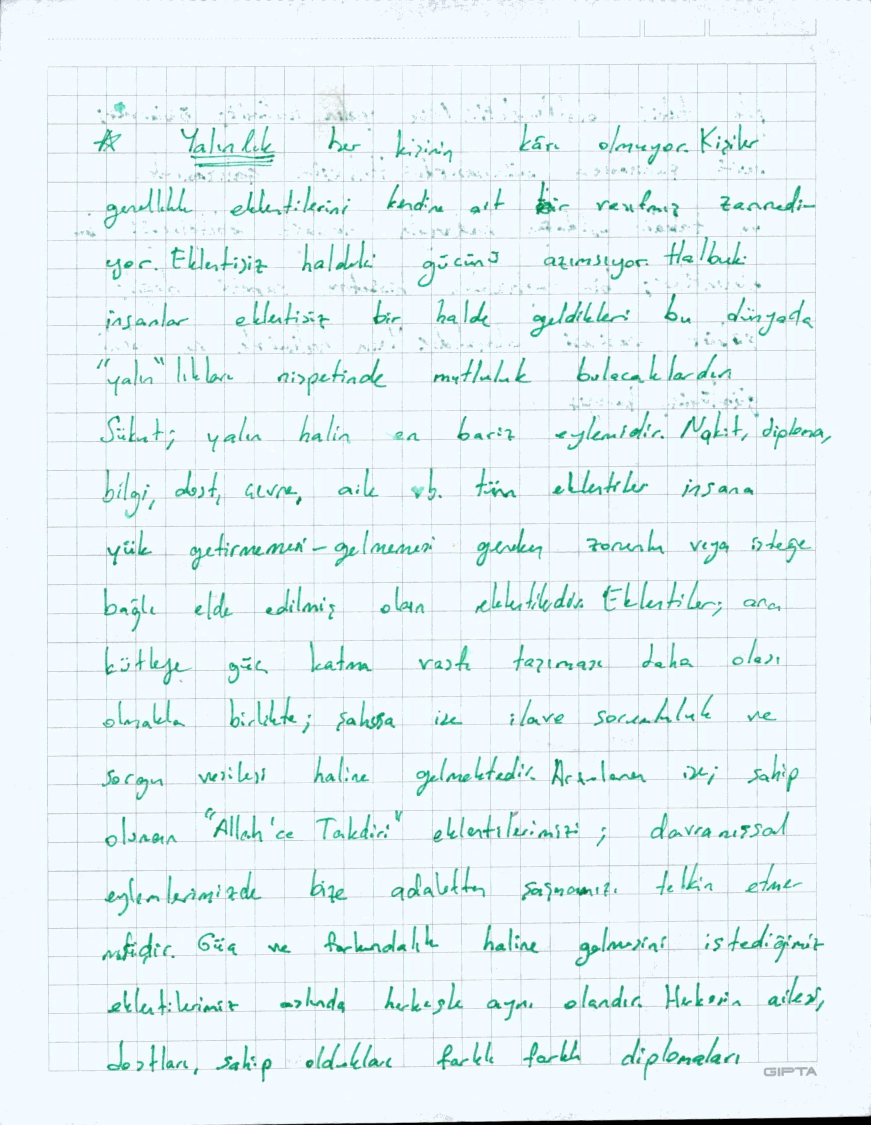 ☆ Yalınlık her kişinin kârı olmuyor. Kişiler
genellikle eklentilerini kendine ait bir zannedi-
yor. Eklentisiz haldeki gücünü azımsıyor. Halbuki
insanlar eklentisiz bir halde geldikleri bu dünyada
"yalın"lıkları nispetinde mutluluk bulacaklardır.
Sükut; yalın halin en bariz eylemidir. Nakit, diploma,
bilgi, dost, çevre, aile vb. tüm eklentiler insana
yük getirmemesi-gelmemesi gereken zorunlu veya isteğe
bağlı elde edilmiş olan eklentilerdir. Eklentiler; ana
kütleye güç katma vasfı taşıması daha olası
olmakla birlikte; şahısa ise ilave sorumluluk ve
sorgu vesilesi haline gelmektedir. ise; sahip
olunan "Allah'ce Takdiri" eklentilerimizi; davranışsal
eylemlerimizde bize adaletten şaşmamızı telkin etme-
Güç ve farkındalık haline gelmesini istediğimiz
eklentilerimiz aslında herkesle aynı olandır. Herkesin ailesi,
dostları, sahip oldukları farklı farklı diplomaları
GIPTA